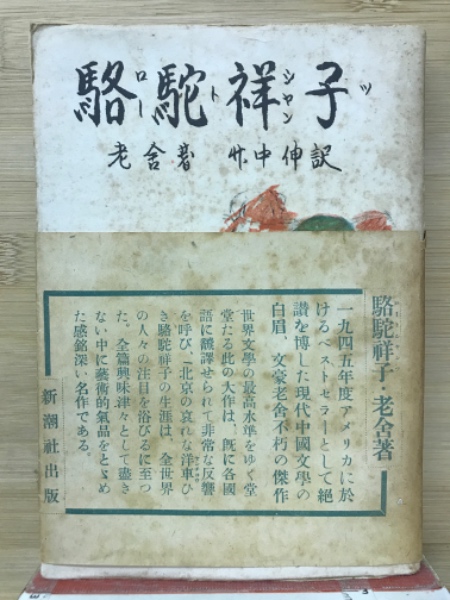 駱駝祥子
ロートシャンツ
老舍著 竹中伸訳
駱駝祥子・老舍著
一九四五年度アメリカに於
けるベストセラーとして絶
讃を博した現代中國文學の
白眉、文豪老舍不朽の傑作
世界文學の最高水準をゆく堂
堂たる此の大作は、既に各國
語に飜譯せられて非常な反響
を呼び、「北京の哀れな洋車ひ
き駱駝祥子の生涯は、全世界
の人々の注目を浴びるに至つ
た。全篇興味津々として盡き
ない中に藝術的氣品をとゞめ
た感銘深い名作である。
新潮社出版